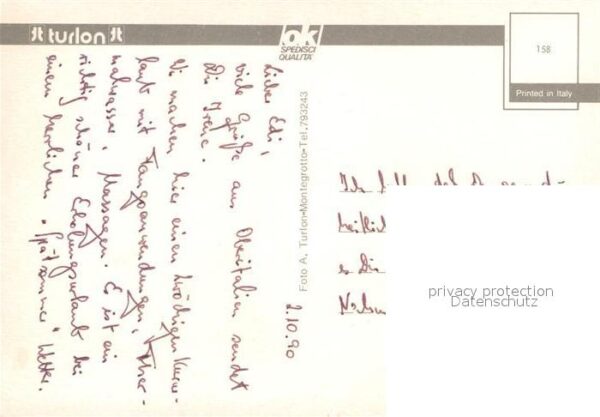 turlon
ok
SPEDISCI
QUALITA'
158
Printed in Italy
Foto A. Turlon-Montegrotto-Tel. 793243
2.10.90
Lieber Edi,
viele Grüße aus Oberitalien sendet
Dir Irene.
Wir machen hier einen 2wöchigen Kurur-
laub mit Fangoanwendungen, Ther-
malwasser, Massagen. Es ist ein
richtig schöner Erholungsurlaub bei
einem herrlichen "Spätsommer" Wetter.
Ich
es Dir
privacy protection
Datenschutz